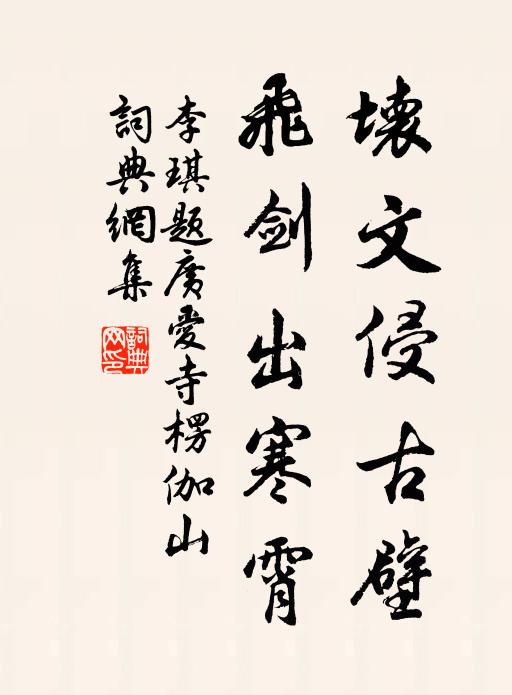 壊文侵古壁
飛剑出寒霄
李琪题廣愛寺楞伽山
詞典網集
詞典網印